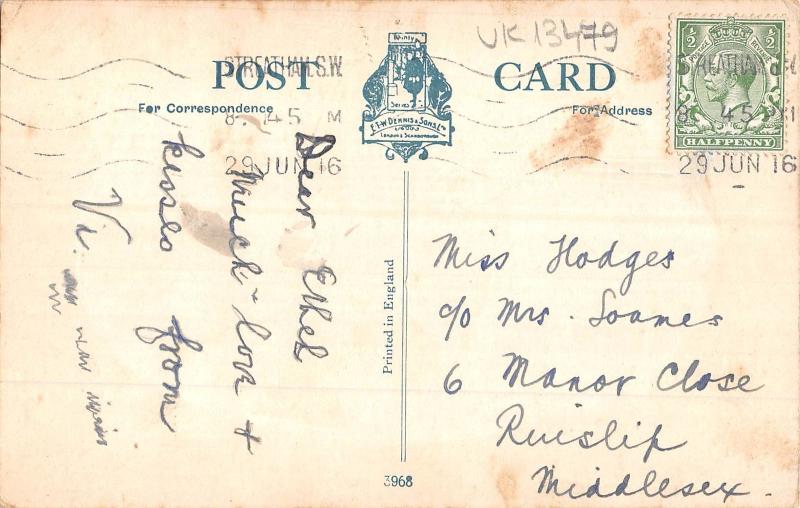 UK 13479
POST CARD
For Correspondence
For Address
STREATHAM. S.W.
8. 45 M
29 JUN 16
STREATHAM S.W.
8. 45 PM
29 JUN 16
½ ½
POSTAGE REVENUE
HALFPENNY
Dainty
Series
E.T.W. DENNIS & SONS LTD
LONDON & SCARBOROUGH
Dear Ethel
Much love &
kisses from
Vi.
Printed in England
3968
Miss Hodges
c/o Mrs. Soames
6 Manor Close
Ruislip
Middlesex.